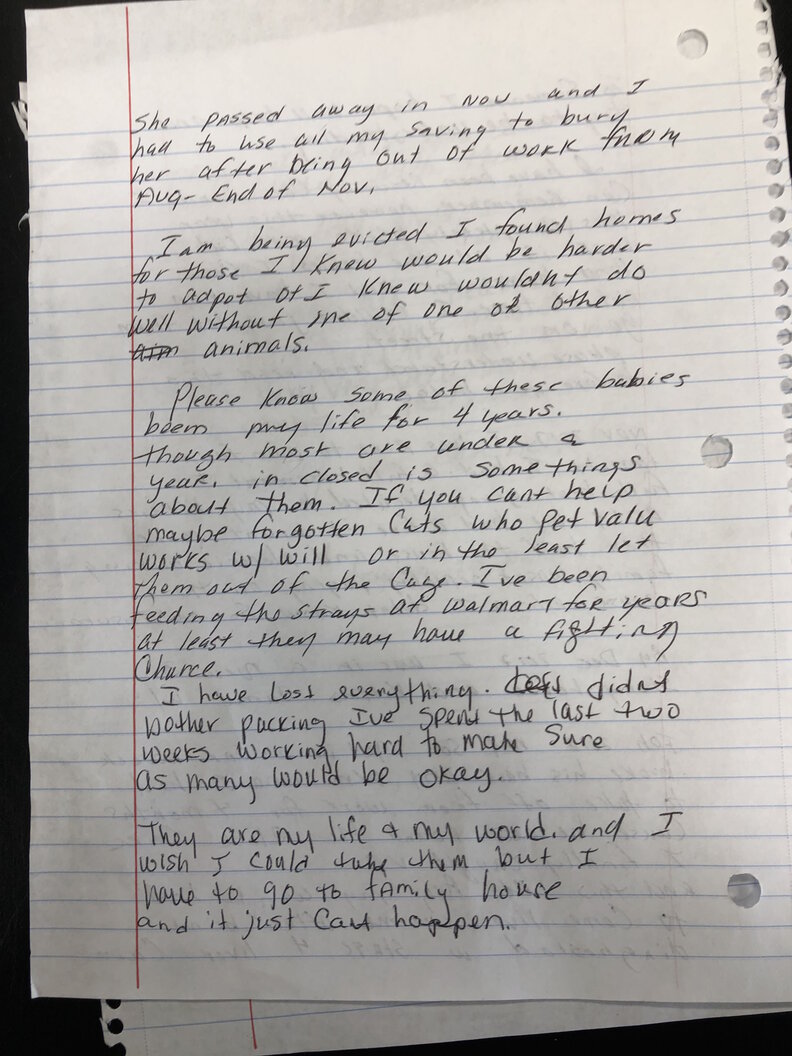 She passed away in Nov and I
had to use all my saving to bury
her after being out of work from
Aug- End of Nov.
I am being evicted I found homes
for those I knew would be harder
to adpot or I knew wouldnt do
well without me of one or other
aim animals.
Please know some of these babies
beem my life for 4 years.
though most are under a
year. in closed is some things
about them. If you cant help
maybe forgotten Cats who Pet Valu
works w/ will or in the least let
them out of the Cage. I've been
feeding the strays at walmart for years
at least they may have a fighting
Chance.
I have loss everything. didnt
bother packing I've spent the last two
weeks working hard to make sure
as many would be okay.
They are my life & my world. and I
wish I could take them but I
have to go to family house
and it just cant happen.